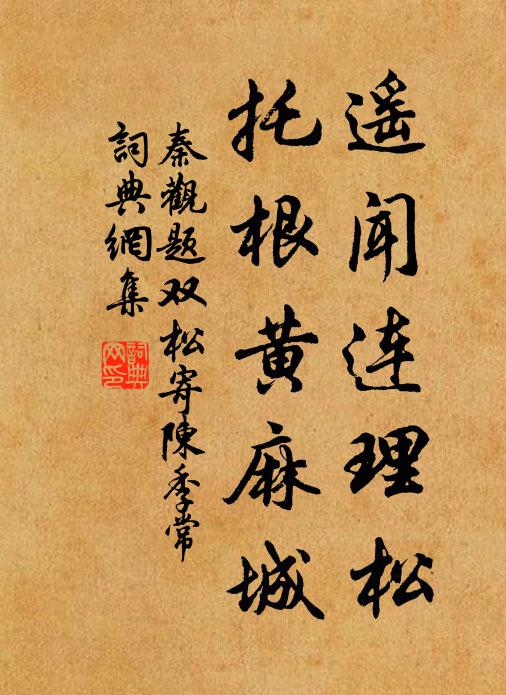 遥闻连理松
托根黄麻城
秦觀题双松寄陳季常
詞典網集
詞典网印